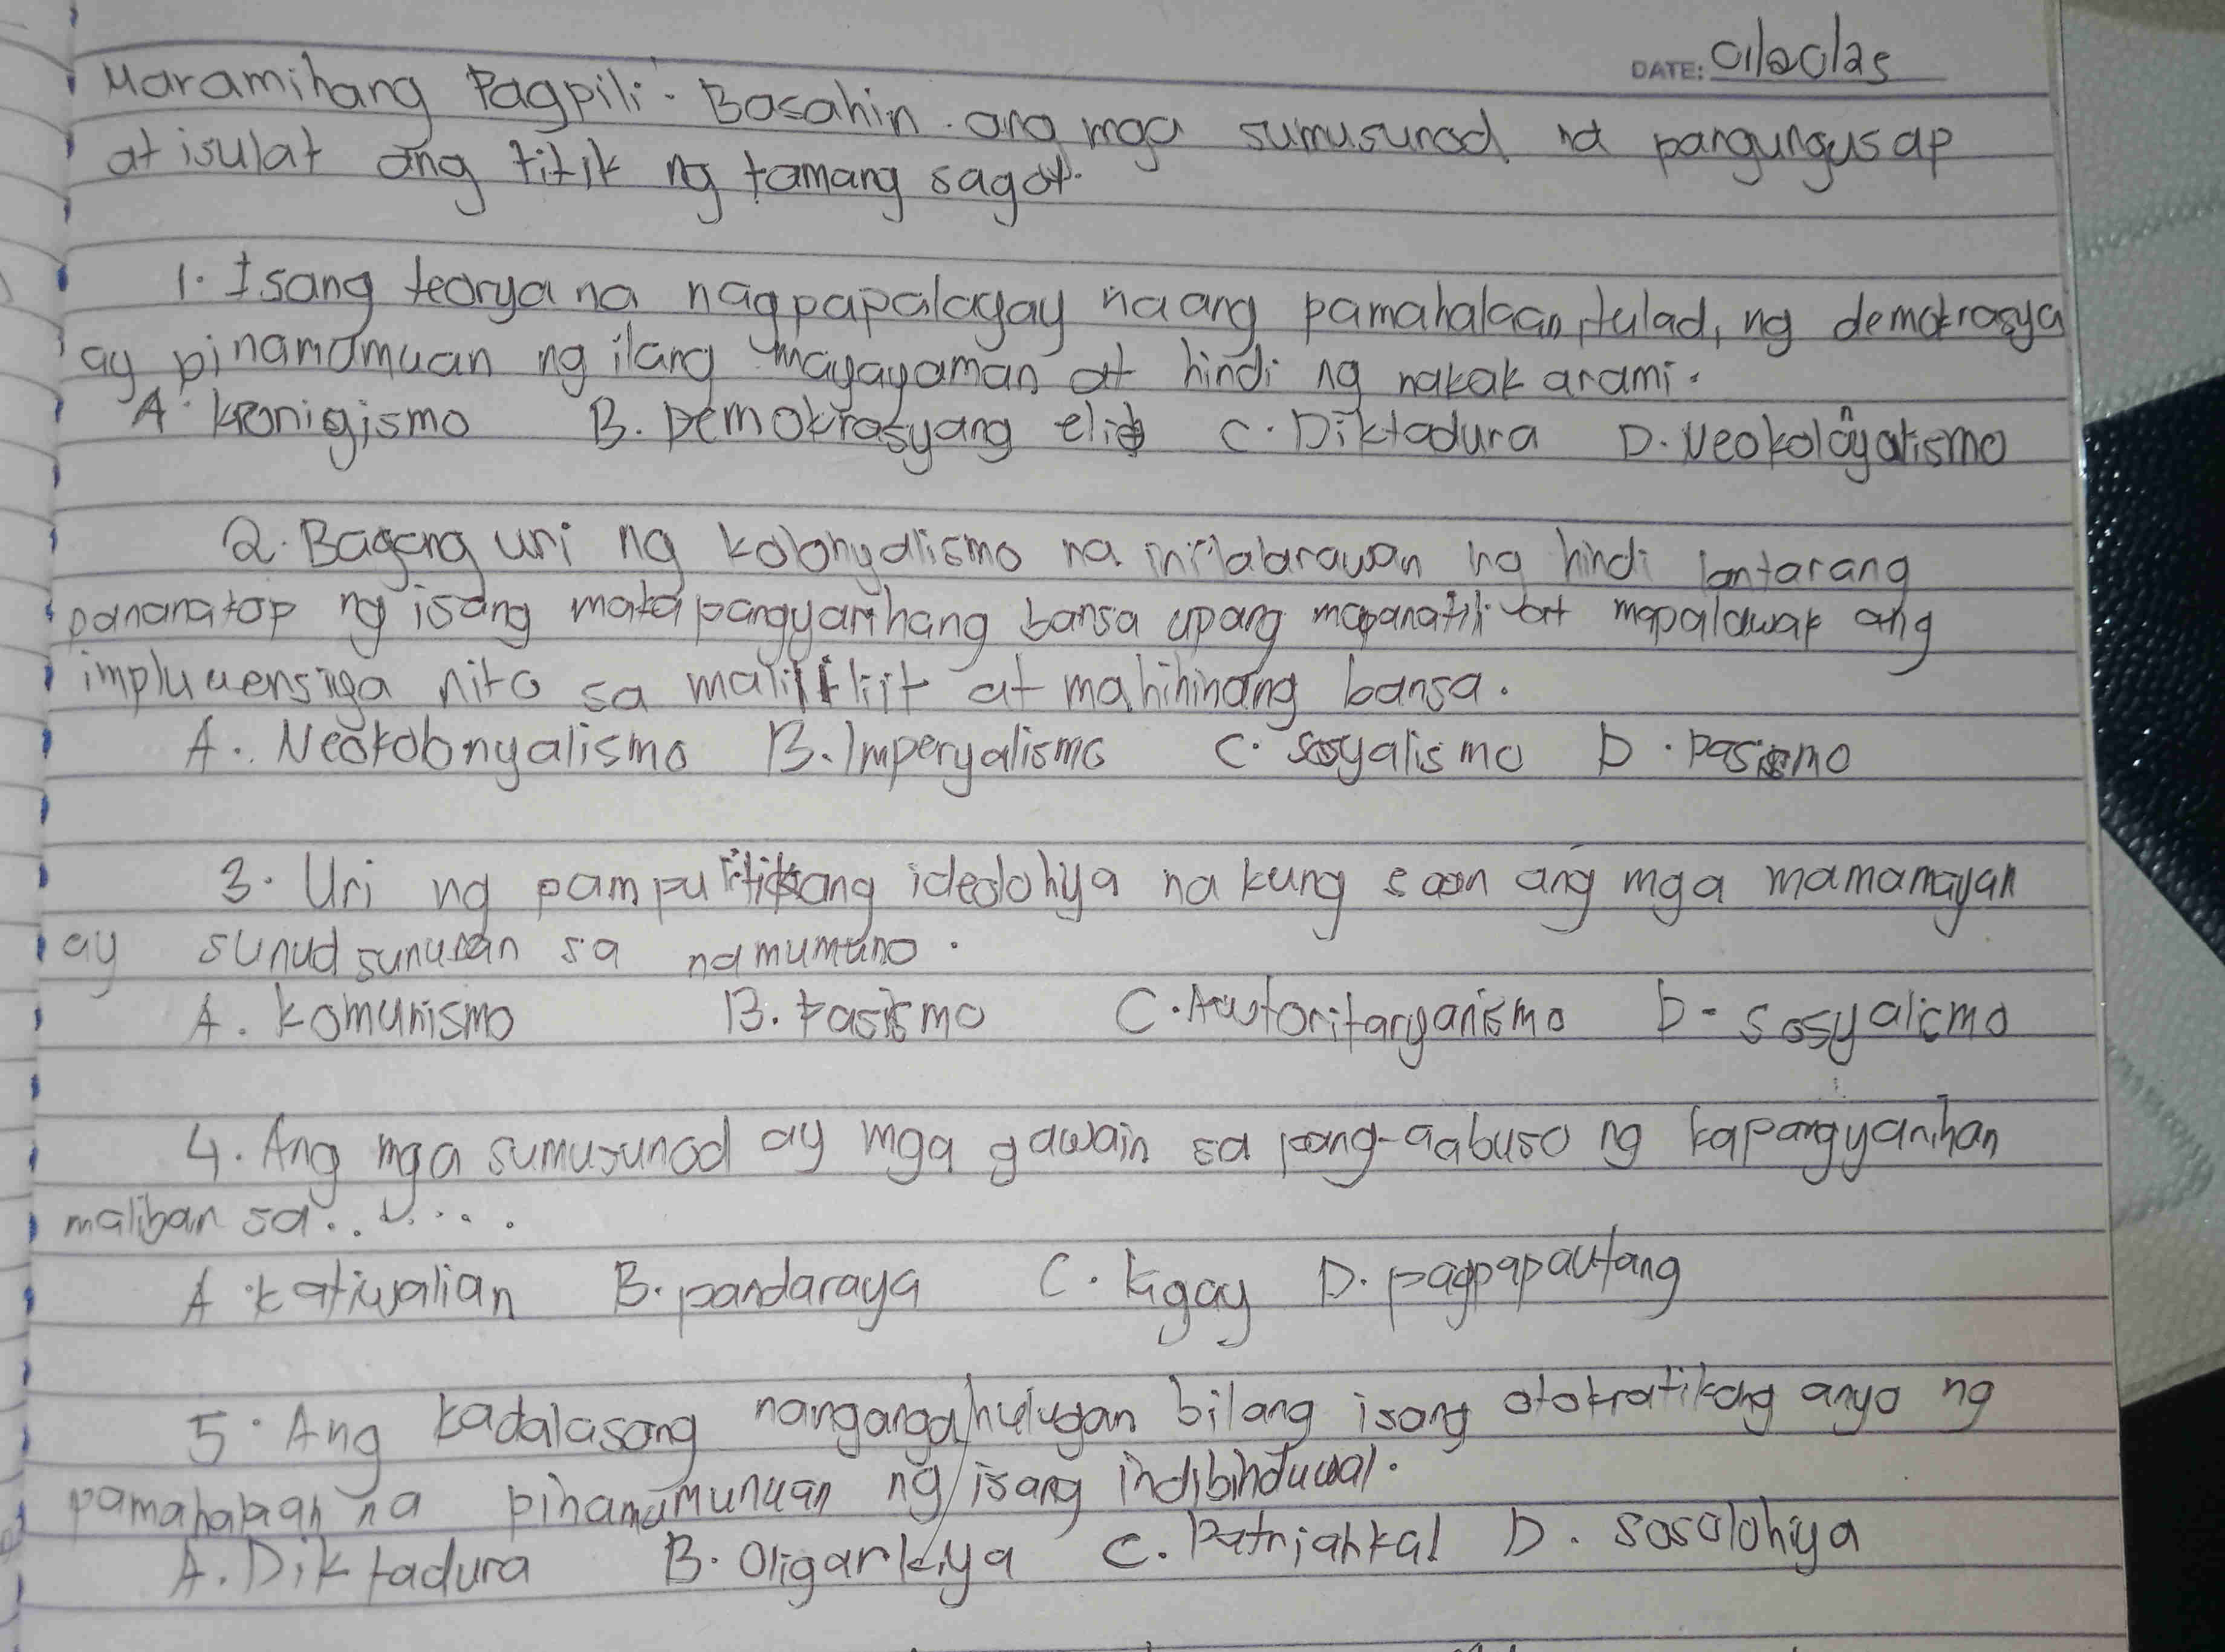 DATE: 01/20/25
Maramihang Pagpili: Basahin ang mga sumusunod na pangungusap
at isulat ang titik ng tamang sagot.
1. Isang teorya na nagpapalagay na ang pamahalaan, tulad, ng demokrasya
ay pinamumuan ng ilang mayayaman at hindi ng nakakarami.
A. kronigismo B. Demokrasyang elit C. Diktadura D. Neokolonyalismo
2. Bagong uri ng kolonyalismo na inilalarawan ng hindi lantarang
pananatop ng isang matapangyarihang bansa upang mapanatili at mapalawak ang
impluwensiya nito sa maliliit at mahihinang bansa.
A. Neokolonyalismo B. Imperyalismo C. sosyalismo D. Pasismo
3. Uri ng pampulitikang ideolohiya na kung saan ang mga mamamayan
ay sunud sunuran sa namumuno.
A. komunismo B. Pasismo C. Autoritaryanismo D- sosyalismo
4. Ang mga sumusunod ay mga gawain sa pang-aabuso ng kapangyarihan
maliban sa......
A. katiwalian B. pandaraya C. ligay D. pagpapautang
5. Ang kadalasang nangangahulugan bilang isang otokratikong anyo ng
pamahalaan na pinamumunuan ng isang indibinduwal.
A. Diktadura B. Oligarkiya C. Patriahkal D. sosolohiya